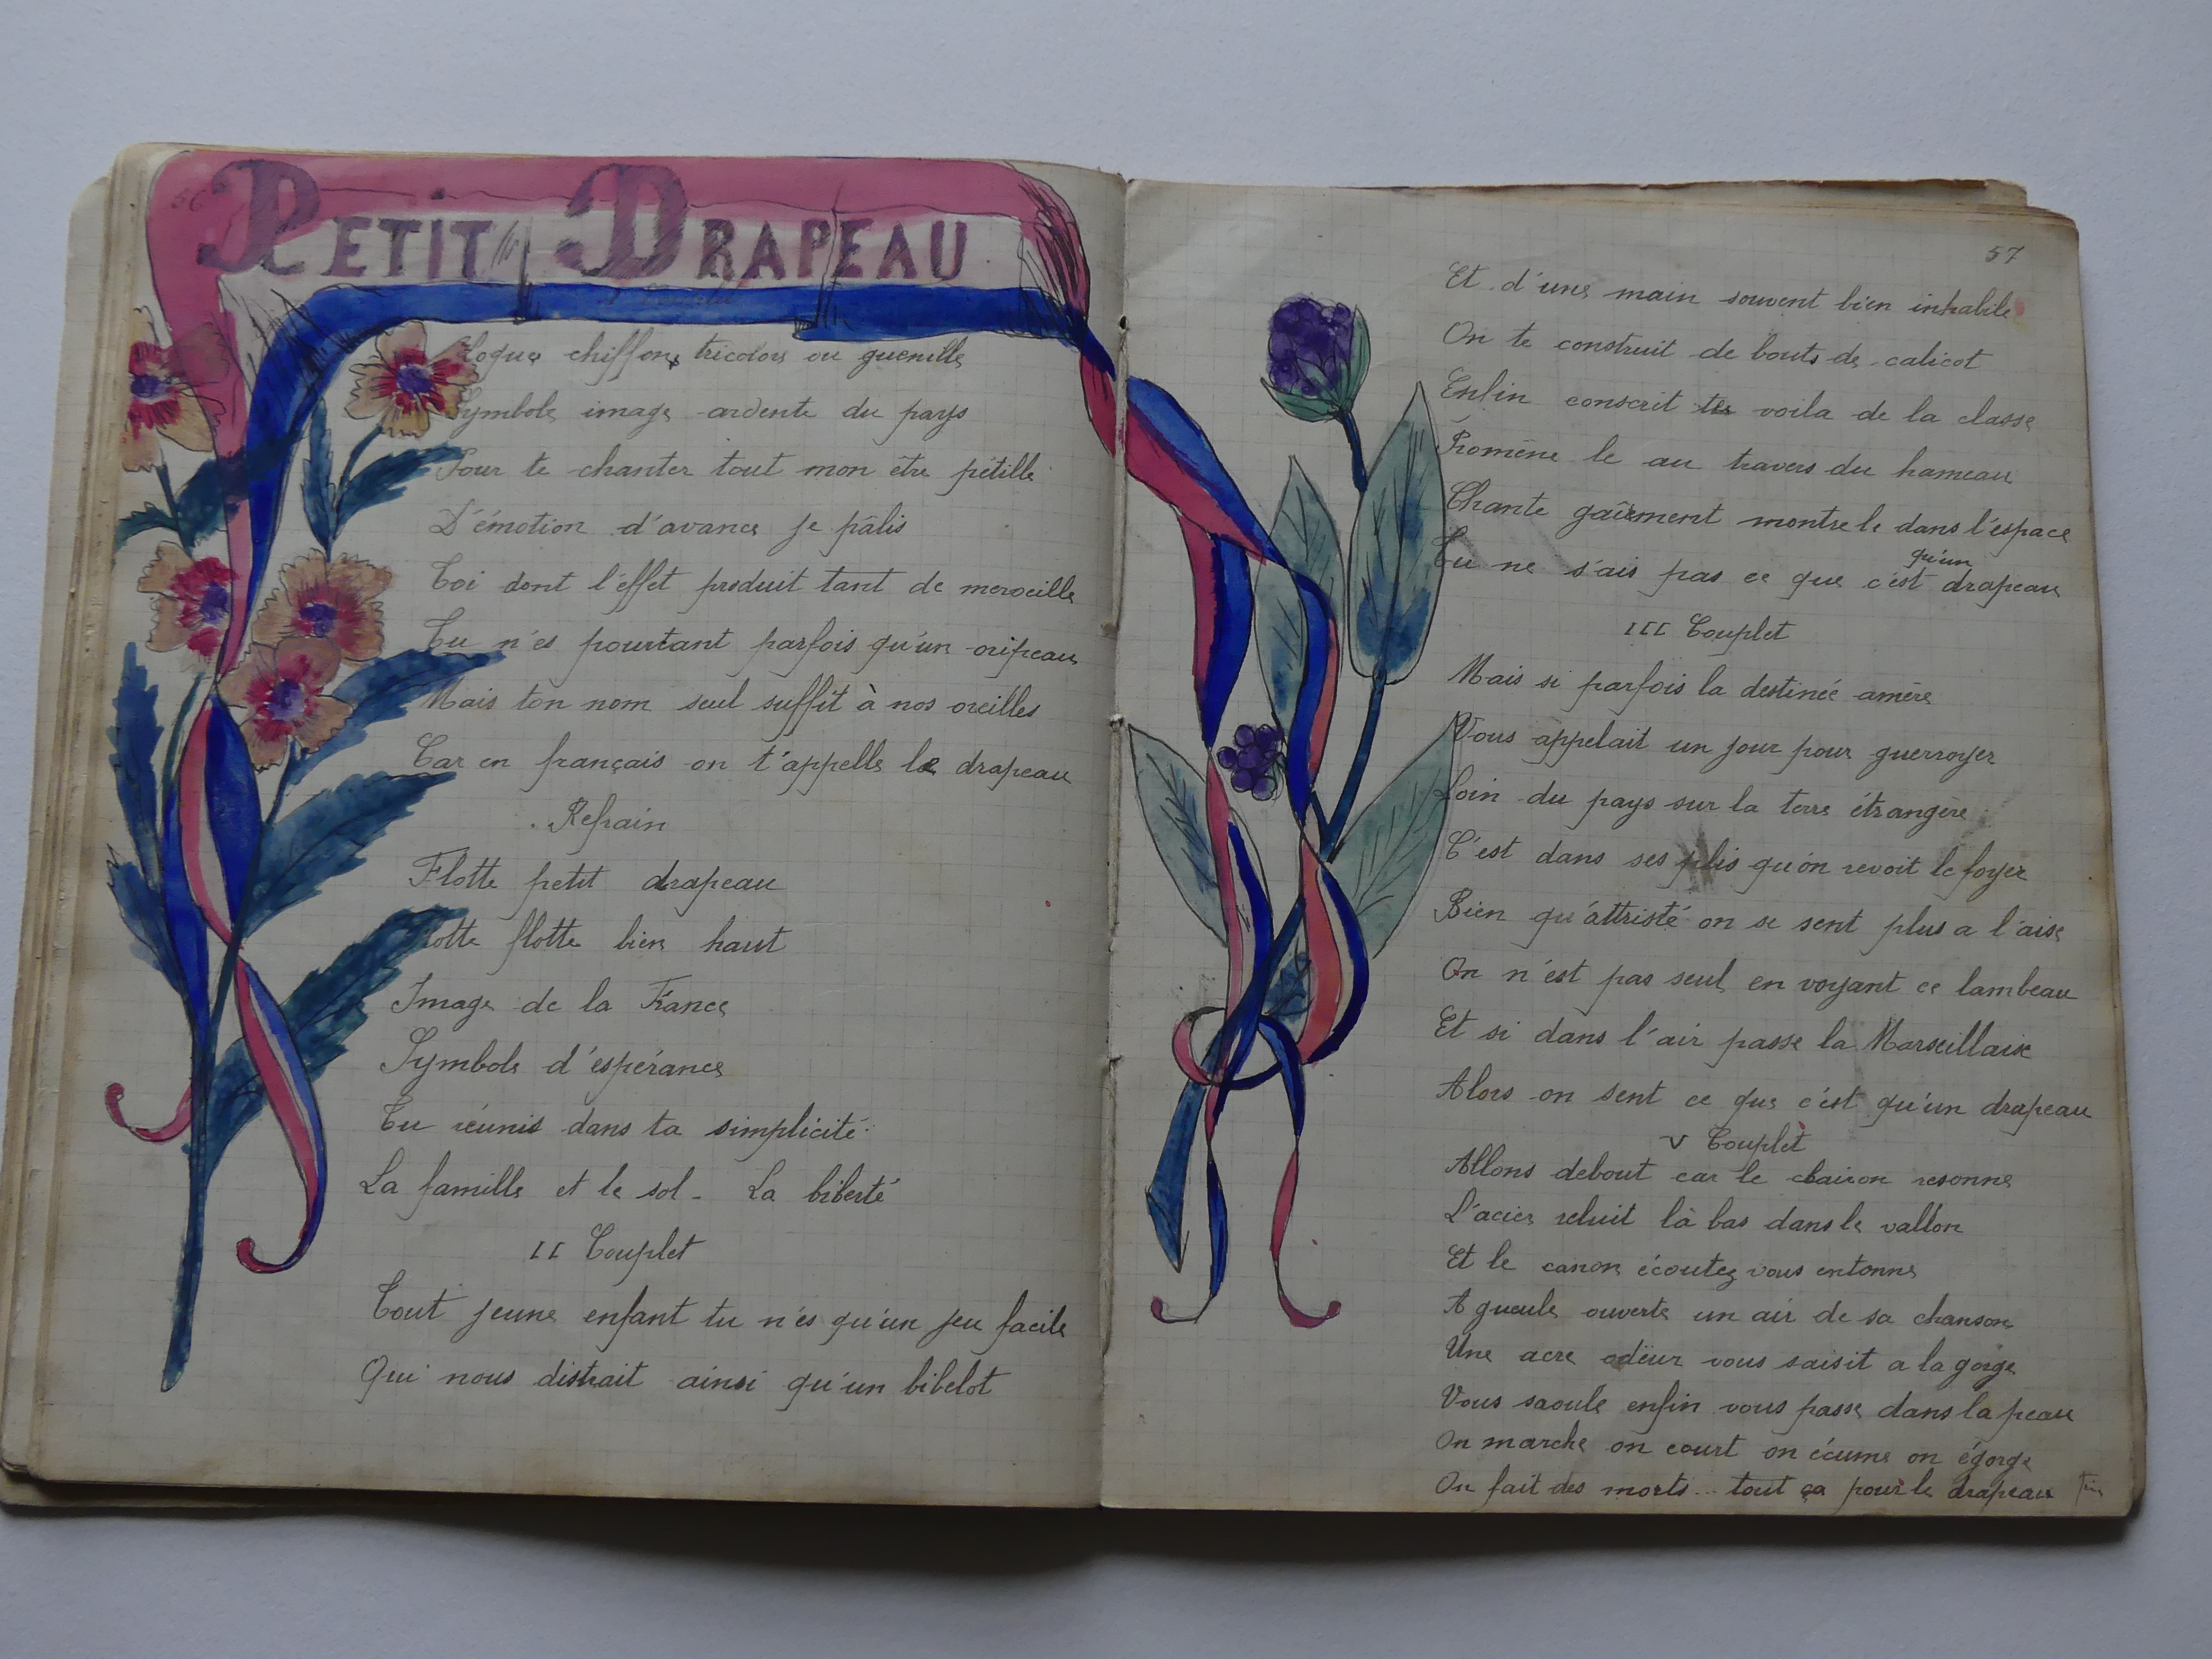 56
PETIT DRAPEAU
Loque chiffons tricolors ou guenille
Symbole image ardente du pays
Pour te chanter tout mon être pétille
D'émotion d'avance je pâlis
Toi dont l'éffet produit tant de merveille
Tu n'es pourtant parfois qu'un oripeau
Mais ton nom seul suffit à nos oreilles
Car en français on t'appelle le drapeau
Refrain
Flotte petit drapeau
Flotte flotte bien haut
Image de la France
Symbole d'espérance
Tu réunis dans ta simplicité
La famille et le sol - La biberté
II Couplet
Tout jeune enfant tu n'es qu'un jeu facile
Qui nous distrait ainsi qu'un bibelot
57
Et d'une main souvent bien inhabile
On te construit de bouts de calicot
Enfin conscrit te voila de la classe
Promène le au travers du hameau
Chante gaîement montre le dans l'espace
Tu ne s'ais pas ce que c'est qu'un drapeau
III Couplet
Mais si parfois la destinée amère
Vous appelait un jour pour guerroyer
Loin du pays sur la terre étrangère
C'est dans ses plis qu'on revoit le foyer
Bien qu'attristé on se sent plus a l'aise
On n'est pas seul en voyant ce lambeau
Et si dans l'air passe la Marseillaise
Alors on sent ce que c'est qu'un drapeau
V Couplet
Allons debout car le clairon resonne
L'acier reluit là bas dans le vallon
Et le canon écoutez vous entonne
A gueule ouverte un air de sa chanson
Une acre odeur vous saisit a la gorge
Vous saoule enfin vous passe dans la peau
On marche on court on écume on égorge
On fait des morts... tout ça pour le drapeau Fin